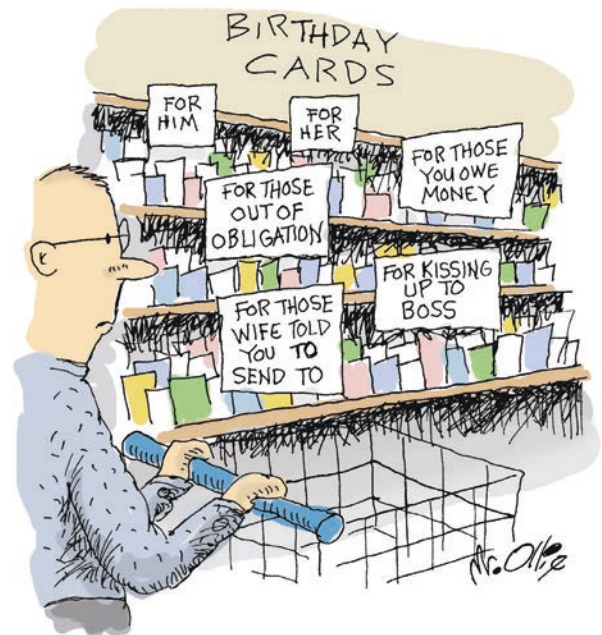 BIRTHDAY
CARDS
FOR
HIM
FOR
HER
FOR THOSE
YOU OWE
MONEY
FOR THOSE
OUT OF
OBLIGATION
FOR KISSING
UP TO
BOSS
FOR THOSE
WIFE TOLD
YOU TO
SEND TO
Mr. Ollie